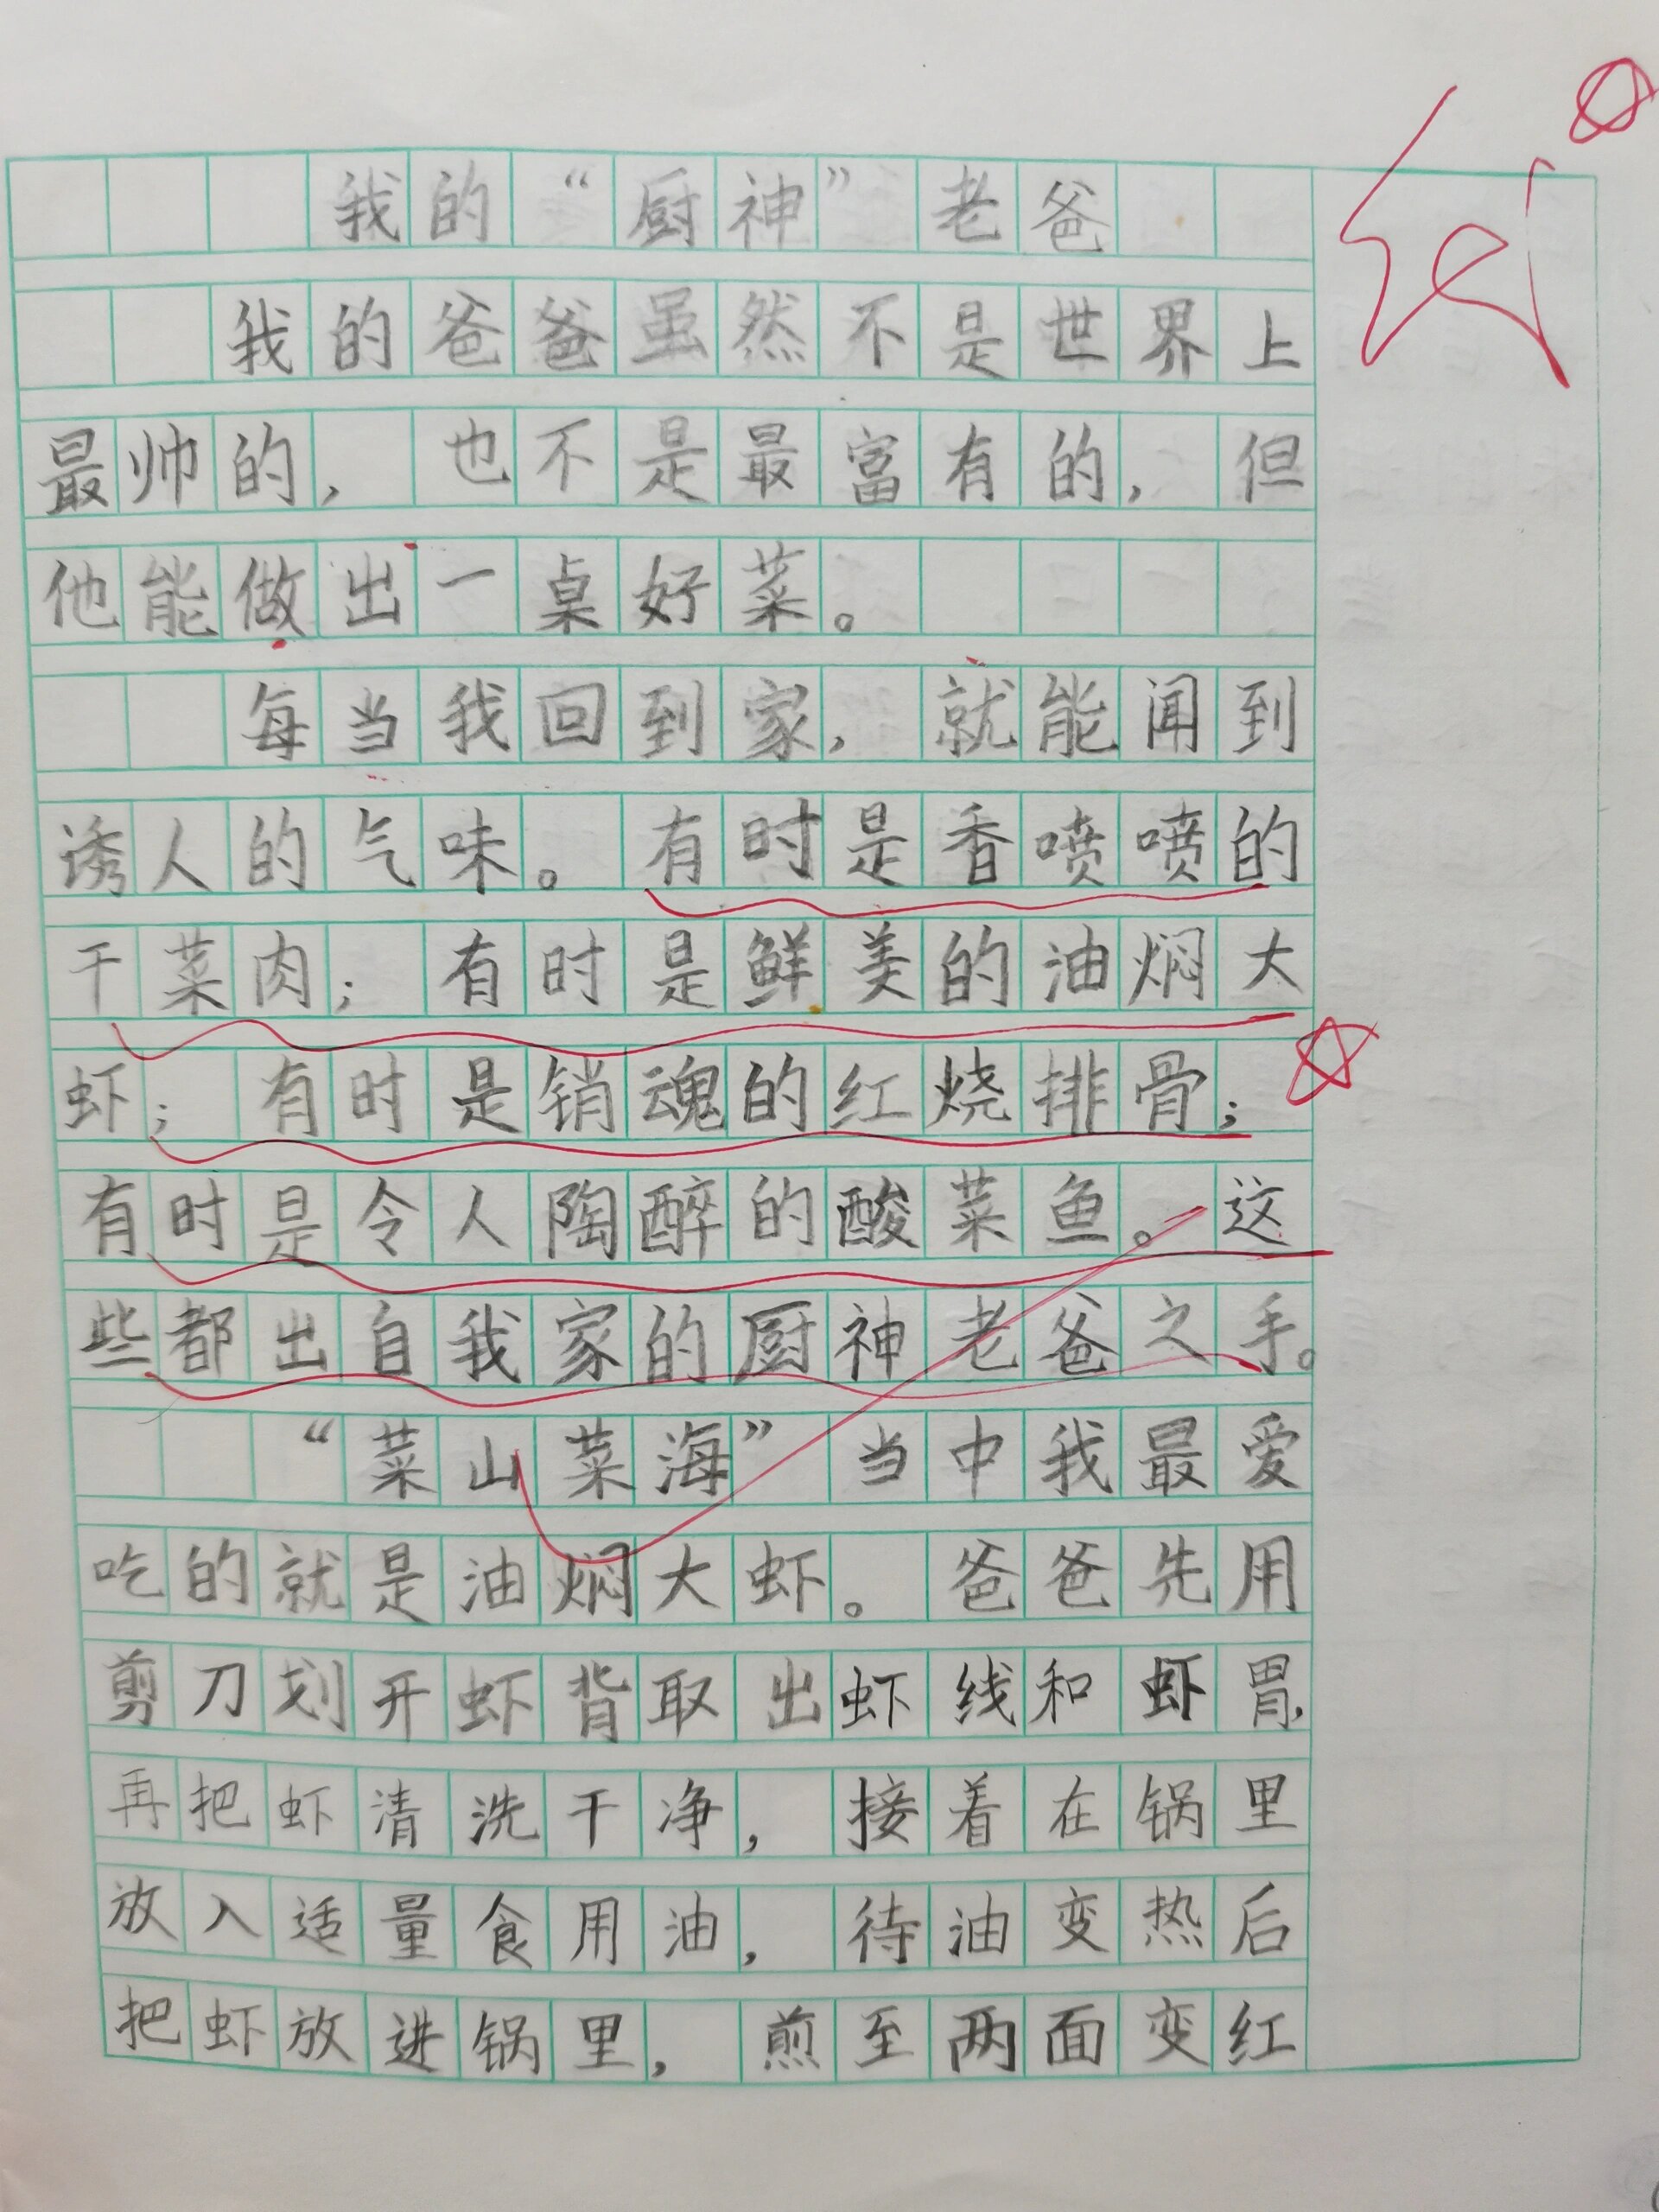 我的“厨神”老爸
我的爸爸虽然不是世界上
最帅的，也不是最富有的，但
他能做出一桌好菜。
每当我回到家，就能闻到
诱人的气味。有时是香喷喷的
干菜肉；有时是鲜美的油焖大
虾；有时是销魂的红烧排骨；
有时是令人陶醉的酸菜鱼。这
些都出自我家的厨神老爸之手。
“菜山菜海”当中我最爱
吃的就是油焖大虾。爸爸先用
剪刀划开虾背取出虾线和虾胃，
再把虾清洗干净，接着在锅里
放入适量食用油，待油变热后
把虾放进锅里，煎至两面变红